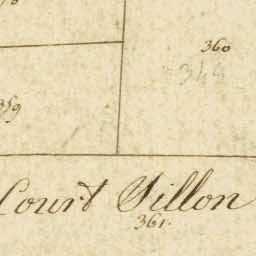 360
349
359
Court Sillon
361.